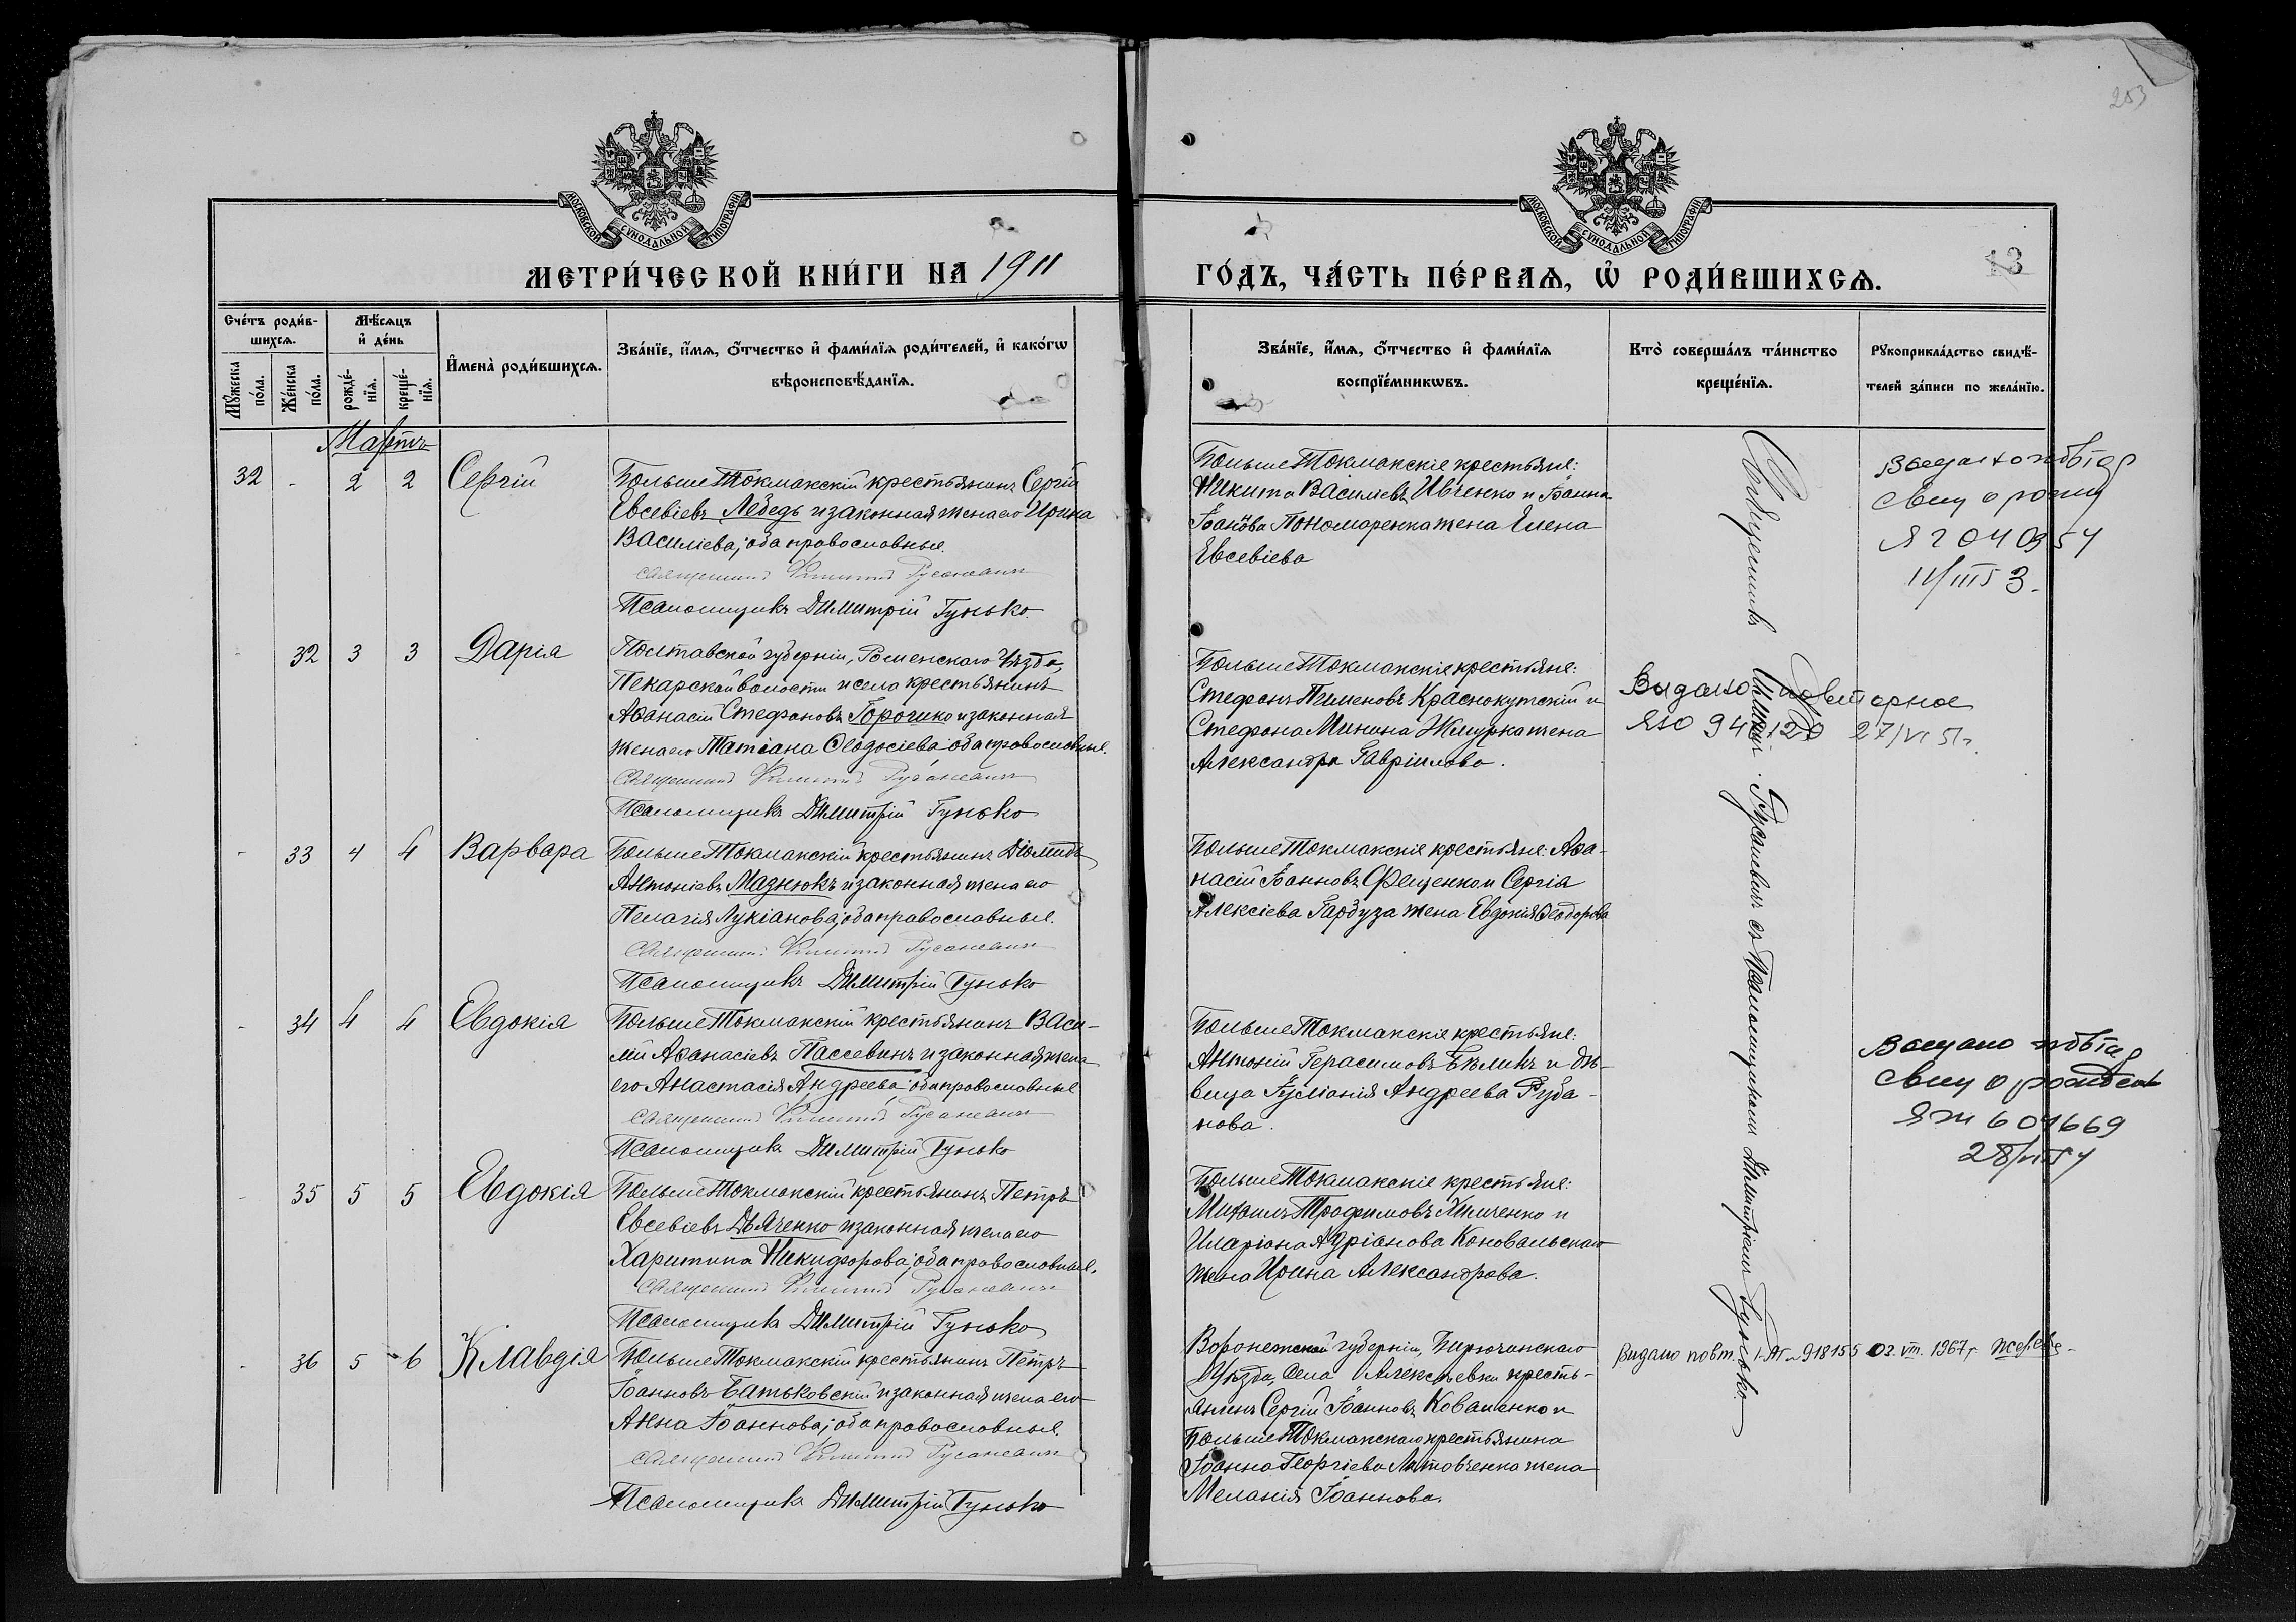 253
МОСКОВСКОЙ СУНОДАЛЬНОЙ ТИПОГРАФІИ
МОСКОВСКОЙ СУНОДАЛЬНОЙ ТИПОГРАФІИ
МЕТРИ́ЧЕСКОЙ КНИ́ГИ НА 1911
ГО́ДЪ, ЧА́СТЬ ПЕ́РВАЯ, Ѡ҆ РОДИ́ВШИХСЯ.
13
Сче́тъ роди́в-
шихся.
Мѣ́сяцъ
и҆ де́нь
Мꙋ́жеска по́ла.
Же́нска по́ла.
рожде́-нїя.
креще́-нїя.
И҆мена̀ роди́вшихся.
Зва́нїе, и҆́мя, ѻ҆́тчество и҆ фами́лїя роди́телей, и҆ како́гѡ
вѣроисповѣ́данїя.
Зва́нїе, и҆́мя, ѻ҆́тчество и҆ фами́лїя
воспрїе́мникѡвъ.
Кто̀ соверша́лъ та́инство
креще́нїя.
Рꙋкоприкла́дство свидѣ́-
телей за́писи по жела́нїю.
Мартъ
32 - 2 2 Сергій
БольшеТокмакскій крестьянинъ Сергій
Евсевіевъ Лебедь и законная жена его Ирина
Василіева; оба православные.
Священникъ Русаневичъ
Псаломщикъ Димитрій Гунько.
БольшеТокмакскіе крестьяне:
Никита Василіевъ Ивченко и Іоанна
Іоанова Пономаренка жена Елена
Евсевіева
о рожд
ЯЮ 94
- 32 3 3 Дарія
Полтавской губерніи, Роменскаго Уѣзда,
Пекарской волости и села крестьянинъ
Аѳанасій Стефановъ Горошко и законная
жена его Татіана Ѳеодосіева; оба православные.
Священникъ Русаневичъ
Псаломщикъ Димитрій Гунько
БольшеТокмакскіе крестьяне:
Стефанъ Пименовъ Краснокутскій и
Стефана Минина Жмурка жена
Александра Гавріилова.
Видано повторное
27/VI 51 г.
- 33 4 4 Варвара
БольшеТокмакскій крестьянинъ Діомидъ
Антоніевъ Мазнюкъ и законная жена его
Пелагія Лукіанова; оба православные.
Священникъ Русаневичъ
Псаломщикъ Димитрій Гунько
БольшеТокмакскіе крестьяне: Аѳа-
насій Іоанновъ Фещенко и Сергія
Алексіева Гарбуза жена Евдокія Ѳеодорова
- 34 4 4 Евдокія
БольшеТокмакскій крестьянинъ Васи-
лій Аѳанасіевъ Пассевинъ и законная жена
его Анастасія Андреева; оба православные
Священникъ Русаневичъ
Псаломщикъ Димитрій Гунько
БольшеТокмакскіе крестьяне:
Антоній Герасимовъ Бѣликъ и дѣ-
вица Андреева Руба-
нова.
о рожден
ЯЖ 601669
- 35 5 5 Евдокія
БольшеТокмакскій крестьянинъ Петръ
Евсевіевъ Дьяченко и законная жена его
Харитина Никифорова; оба православные.
Священникъ Русаневичъ
Псаломщикъ Димитрій Гунько
БольшеТокмакскіе крестьяне:
Михаилъ Трофимовъ Химченко и
Иларіона Адріанова Коновальскаго
жена Ирина Александрова.
- 36 5 6 Клавдія
БольшеТокмакскій крестьянинъ Петръ
Іоанновъ Батьковскій и законная жена его
Анна Іоаннова; оба православные.
Священникъ Русаневичъ
Псаломщикъ Димитрій Гунько
Воронежской губерніи, Бирюченскаго
Уѣзда, села Алексѣевки кресть-
янинъ Сергій Іоанновъ Коваленко и
БольшеТокмакскаго крестьянина
Іоанна Георгіева Литовченка жена
Меланія Іоаннова.
Видано повт. 918155 02.VIII.1967 г.
Священникъ Русаневичъ съ Псаломщикомъ Димитріемъ Гунько.